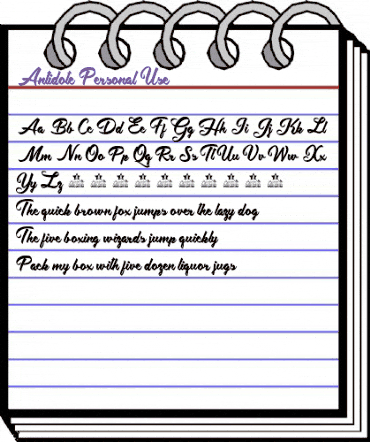 Antidote Personal Use
Aa Bb Cc Dd Ee Ff Gg Hh Ii Jj Kk Ll
Mm Nn Oo Pp Qq Rr Ss Tt Uu Vv Ww Xx
Yy Zz
The quick brown fox jumps over the lazy dog
The five boxing wizards jump quickly
Pack my box with five dozen liquor jugs